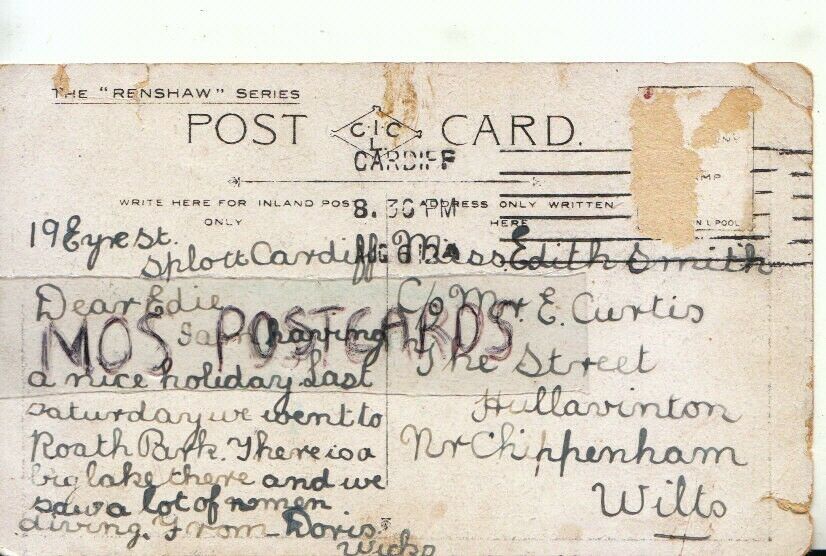 THE "RENSHAW" SERIES
POST CARD.
C I C L
CARDIFF
8. 30 PM
AUG 6 12
WRITE HERE FOR INLAND POST
ONLY
ADDRESS ONLY WRITTEN
HERE
19 Eyre St.
Splott Cardiff
Dear Edie
I am having
a nice holiday. Last
saturday we went to
Roath Park. There is a
big lake there and we
saw a lot of women
diving. From Doris
Wicks
Miss. Edith Smith
C/o Mr. E. Curtis
The Street
Hullavinton
Nr Chippenham
Wilts
MOS POSTCARDS